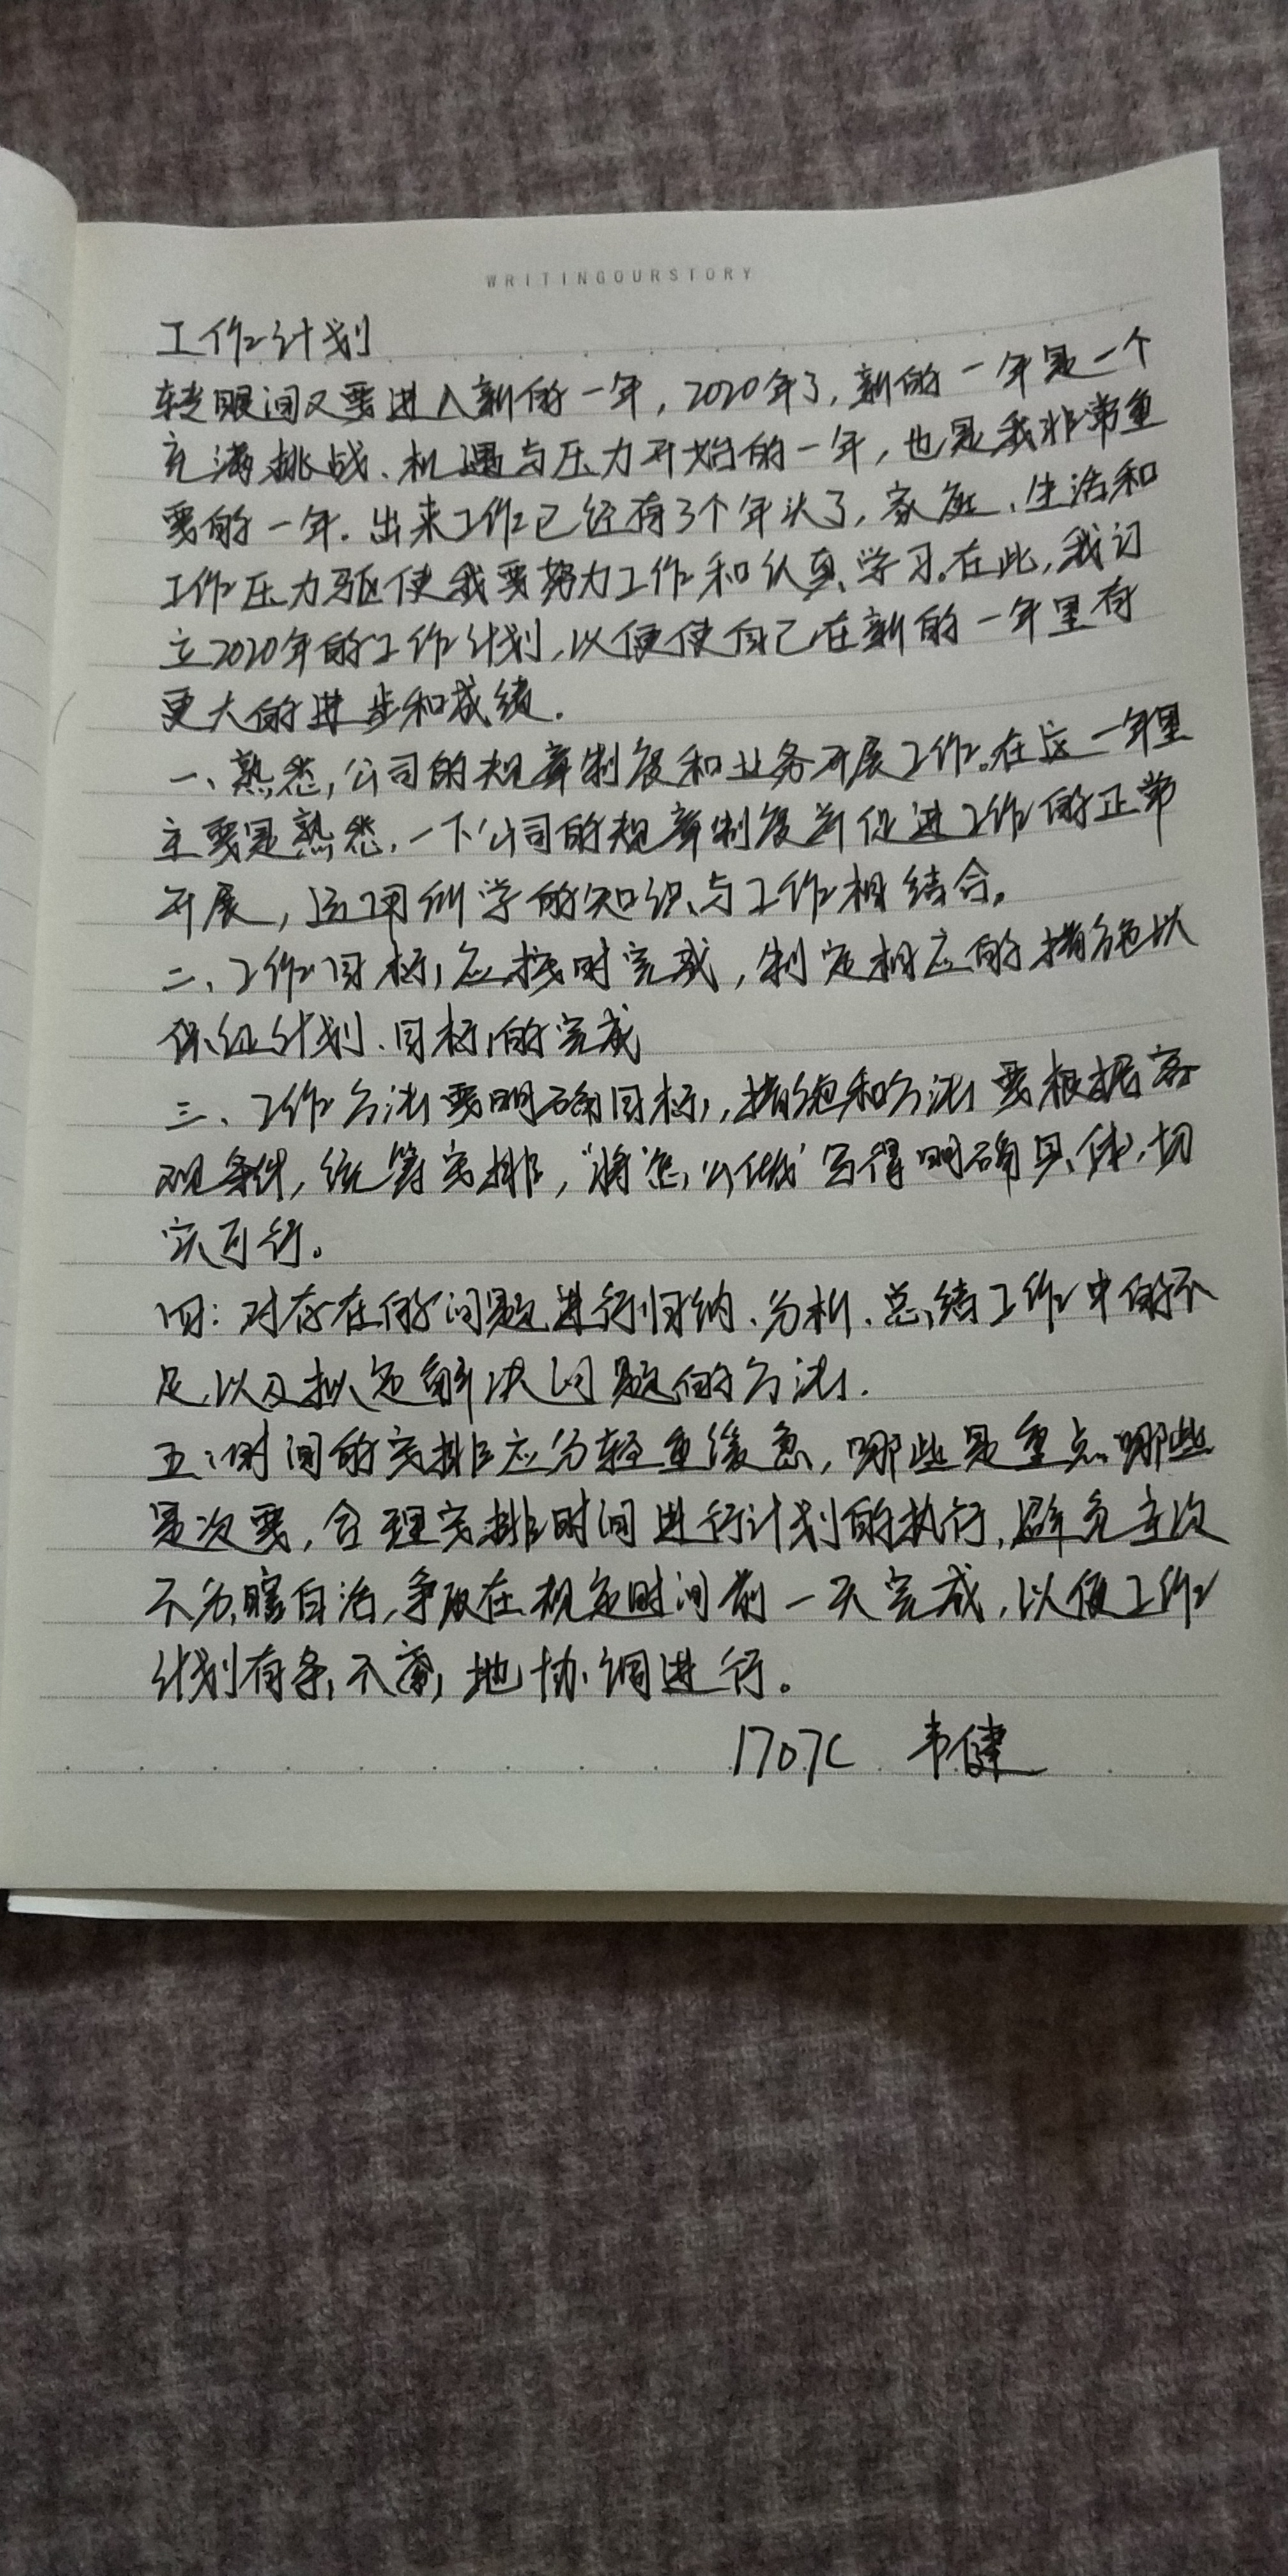 WRITINGOURSTORY
工作计划
转眼间又要进入新的一年，2020年了，新的一年是一个
充满挑战、机遇与压力开始的一年，也是我非常重
要的一年．出来工作已经有3个年头了，家庭、生活和
工作压力驱使我要努力工作和认真学习。在此，我订
立2020年的工作计划，以便使自己在新的一年里有
更大的进步和成绩．
一、熟悉公司的规章制度和业务开展工作。在这一年里
主要是熟悉一下公司的规章制度并促进工作的正常
开展，运用所学的知识与工作相结合。
二、工作目标应按时完成，制定相应的措施以
保证计划、目标的完成
三、工作方法要明确目标，措施和方法要根据客
观条件，统筹安排，"将怎么做"写得明确具体、切
实可行。
四：对存在的问题进行归纳、分析、总结工作中的不
足以及拟定解决问题的方法．
五：时间的安排应分轻重缓急，哪些是重点哪些
是次要，合理安排时间进行计划的执行，避免主次
不分瞎自治，争取在规定时间前一天完成，以便工作
计划有条不紊地协调进行。
1707C 韦健